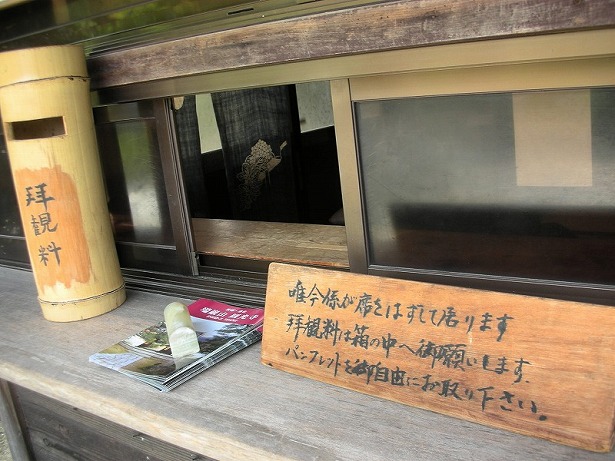 拝観料
唯今係が席をはずして居ります
拝観料は箱の中へ御願いします。
パンフレットを御自由にお取り下さい。